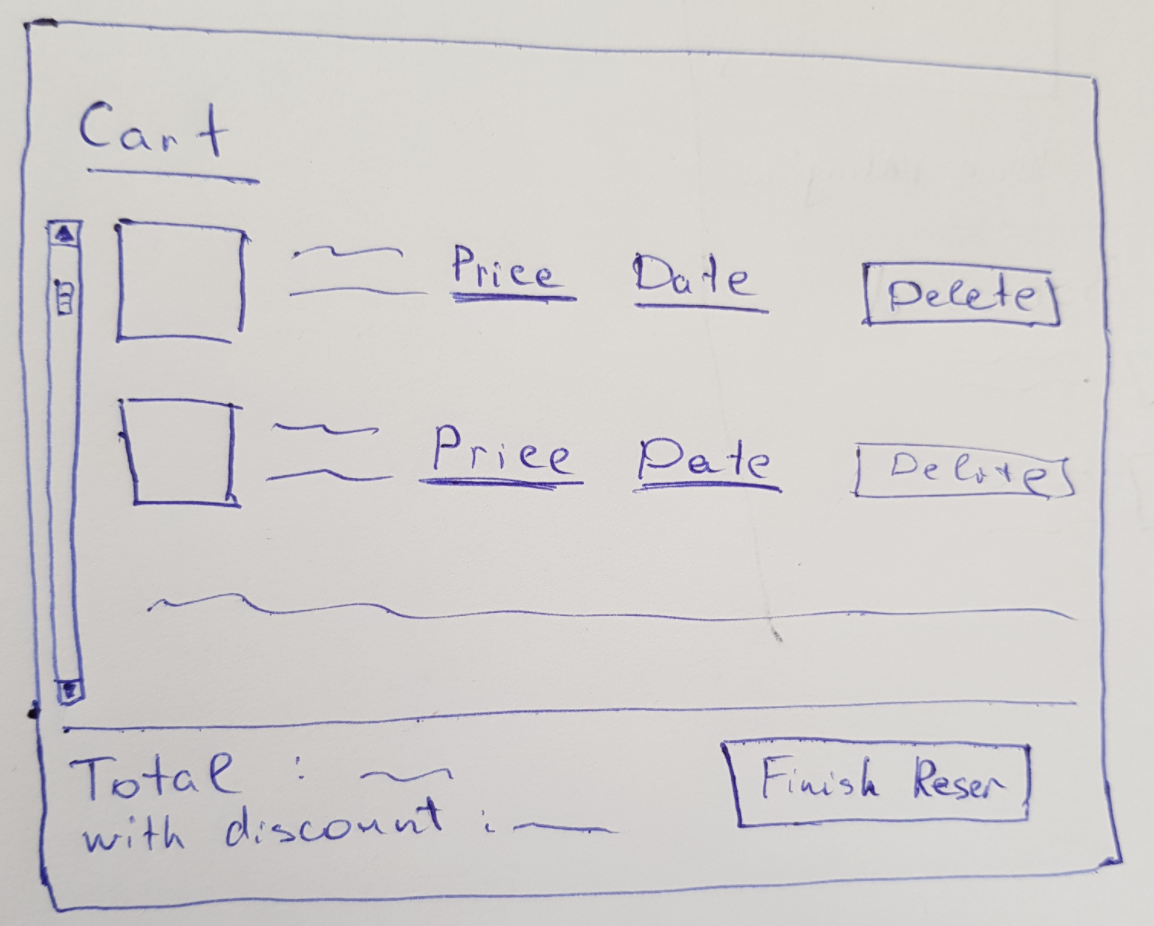 Cart
Price Date Delete
Price Date Delete
Total :
with discount :
Finish Reser